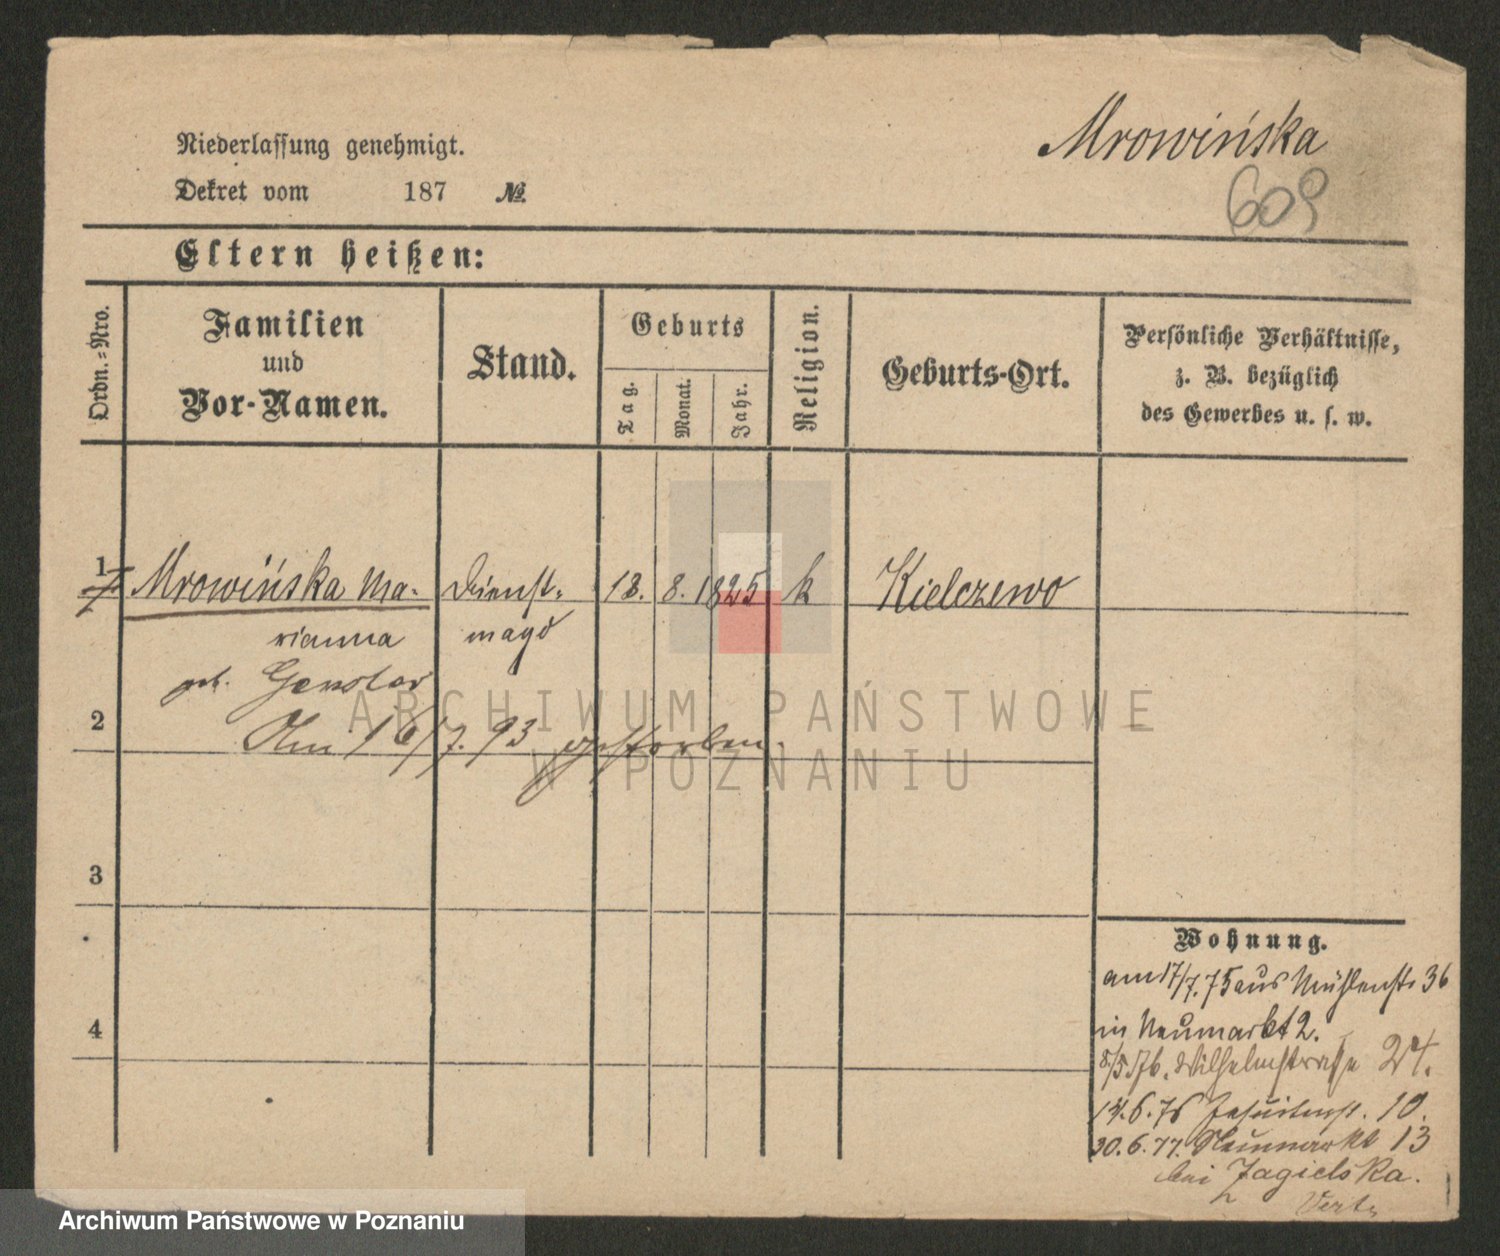 Mrowińska
609
Niederlassung genehmigt.
Dekret vom 187 №
Eltern heißen:
Ordn.=Nro.
Familien
und
Vor-Namen.
Stand.
Geburts
Tag.
Monat.
Jahr.
Religion.
Geburts-Ort.
Persönliche Verhältnisse,
z. B. bezüglich
des Gewerbes u. s. w.
1 Mrowińska Ma- Dienst- 18. 8. 1825 k Kielczewo
rianna magd
geb.
2 Am 16/7. 93 gestorben.
3
4
Wohnung.
am 17/7. 75 aus Mühlenstr 36
in Neumarkt 2.
8/5 76. Wilhelmstraße 24.
14.6.76 Jesuitenst. 10.
30.6.77. Neumarkt 13
bei Jagielska.
Vert.
ARCHIWUM PAŃSTWOWE
W POZNANIU
Archiwum Państwowe w Poznaniu